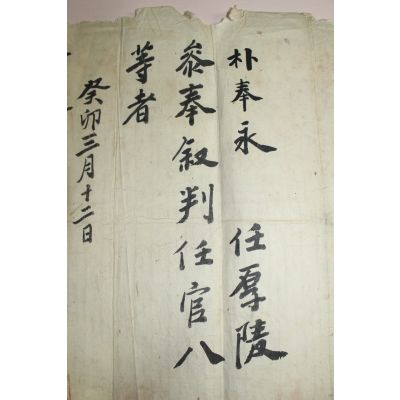 朴奉永 任厚陵
叅奉叙判任官八
等者
癸卯三月十二日